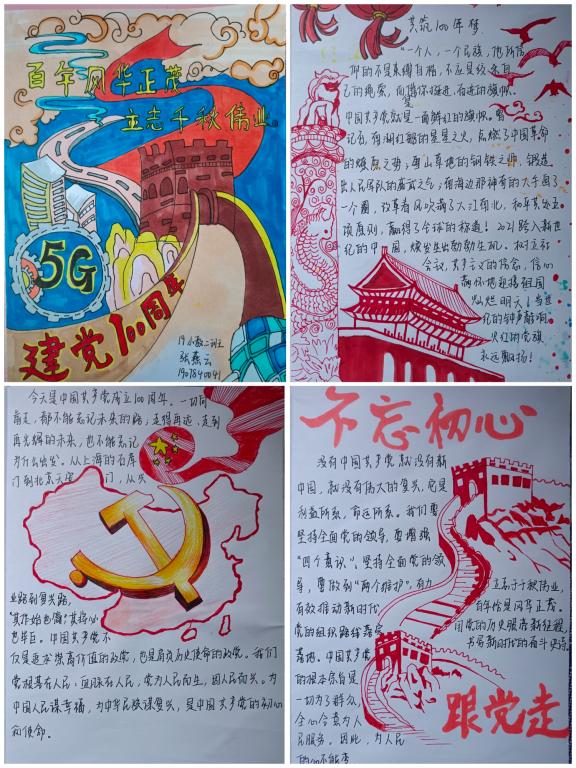 百年风华正茂
立志千秋伟业
5G
建党100周年
19小教二班
张燕云
1907840041
共筑100年梦
"一个人,一个民族,他所信
仰的不是束缚自相,不应是绞杀自
己的绳索,而
中国共产党就是一面鲜红的旗帜。曾
记否,南湖红船的星星之火,点燃了中国革命
的燎原之势;雪山草地的钢铁之师,锻造
出人民军队的威武之气;南海边那神奇的大手画了
一个圈,改革春风吹满了大江南北,和平共处五
项原则,赢得了全球的称道!2021跨入新世
纪的中国,焕发生出勃勃生机。树立好
会议,共产主义的信念,信心
满怀地迎接祖国
灿烂明天!当世
纪的钟声敲响
火红的党旗
永远飘扬!
今天是中国共产党成立100周年。一切向
前走,都不能忘记未来的路;走得再远、走到
再光辉的未来,也不能忘记
为什么出发。从上海的石库
门到北京天安门,从兴
业路到复兴路,
"其作始也简,其将毕
也毕巨。中国共产党不
仅是追求崇高价值的政党,也是肩负历史使命的政党。我们
党根基在人民,血脉在人民,党为人民而生,因人民而兴。为
中国人民谋幸福,为中华民族谋复兴,是中国共产党的初心
和使命。
不忘初心
没有中国共产党就没有新
中国,就没有伟大的复兴,它是
利益所系,命运所系。我们要
坚持全面党的领导,要增强
"四个意识"、坚持全面党的领
导,要做到"两个维护",有力
有效推动新时代
党的组织路线落实
落地。中国共产党
的根本宗旨是
一切为了群众,
全心全意为人
民服务。因此,为人民
的心不能变
立志于千秋伟业,
百年恰是风华正茂。
用党的历史照亮新征程,
书写新时代的奋斗史诗
跟党走